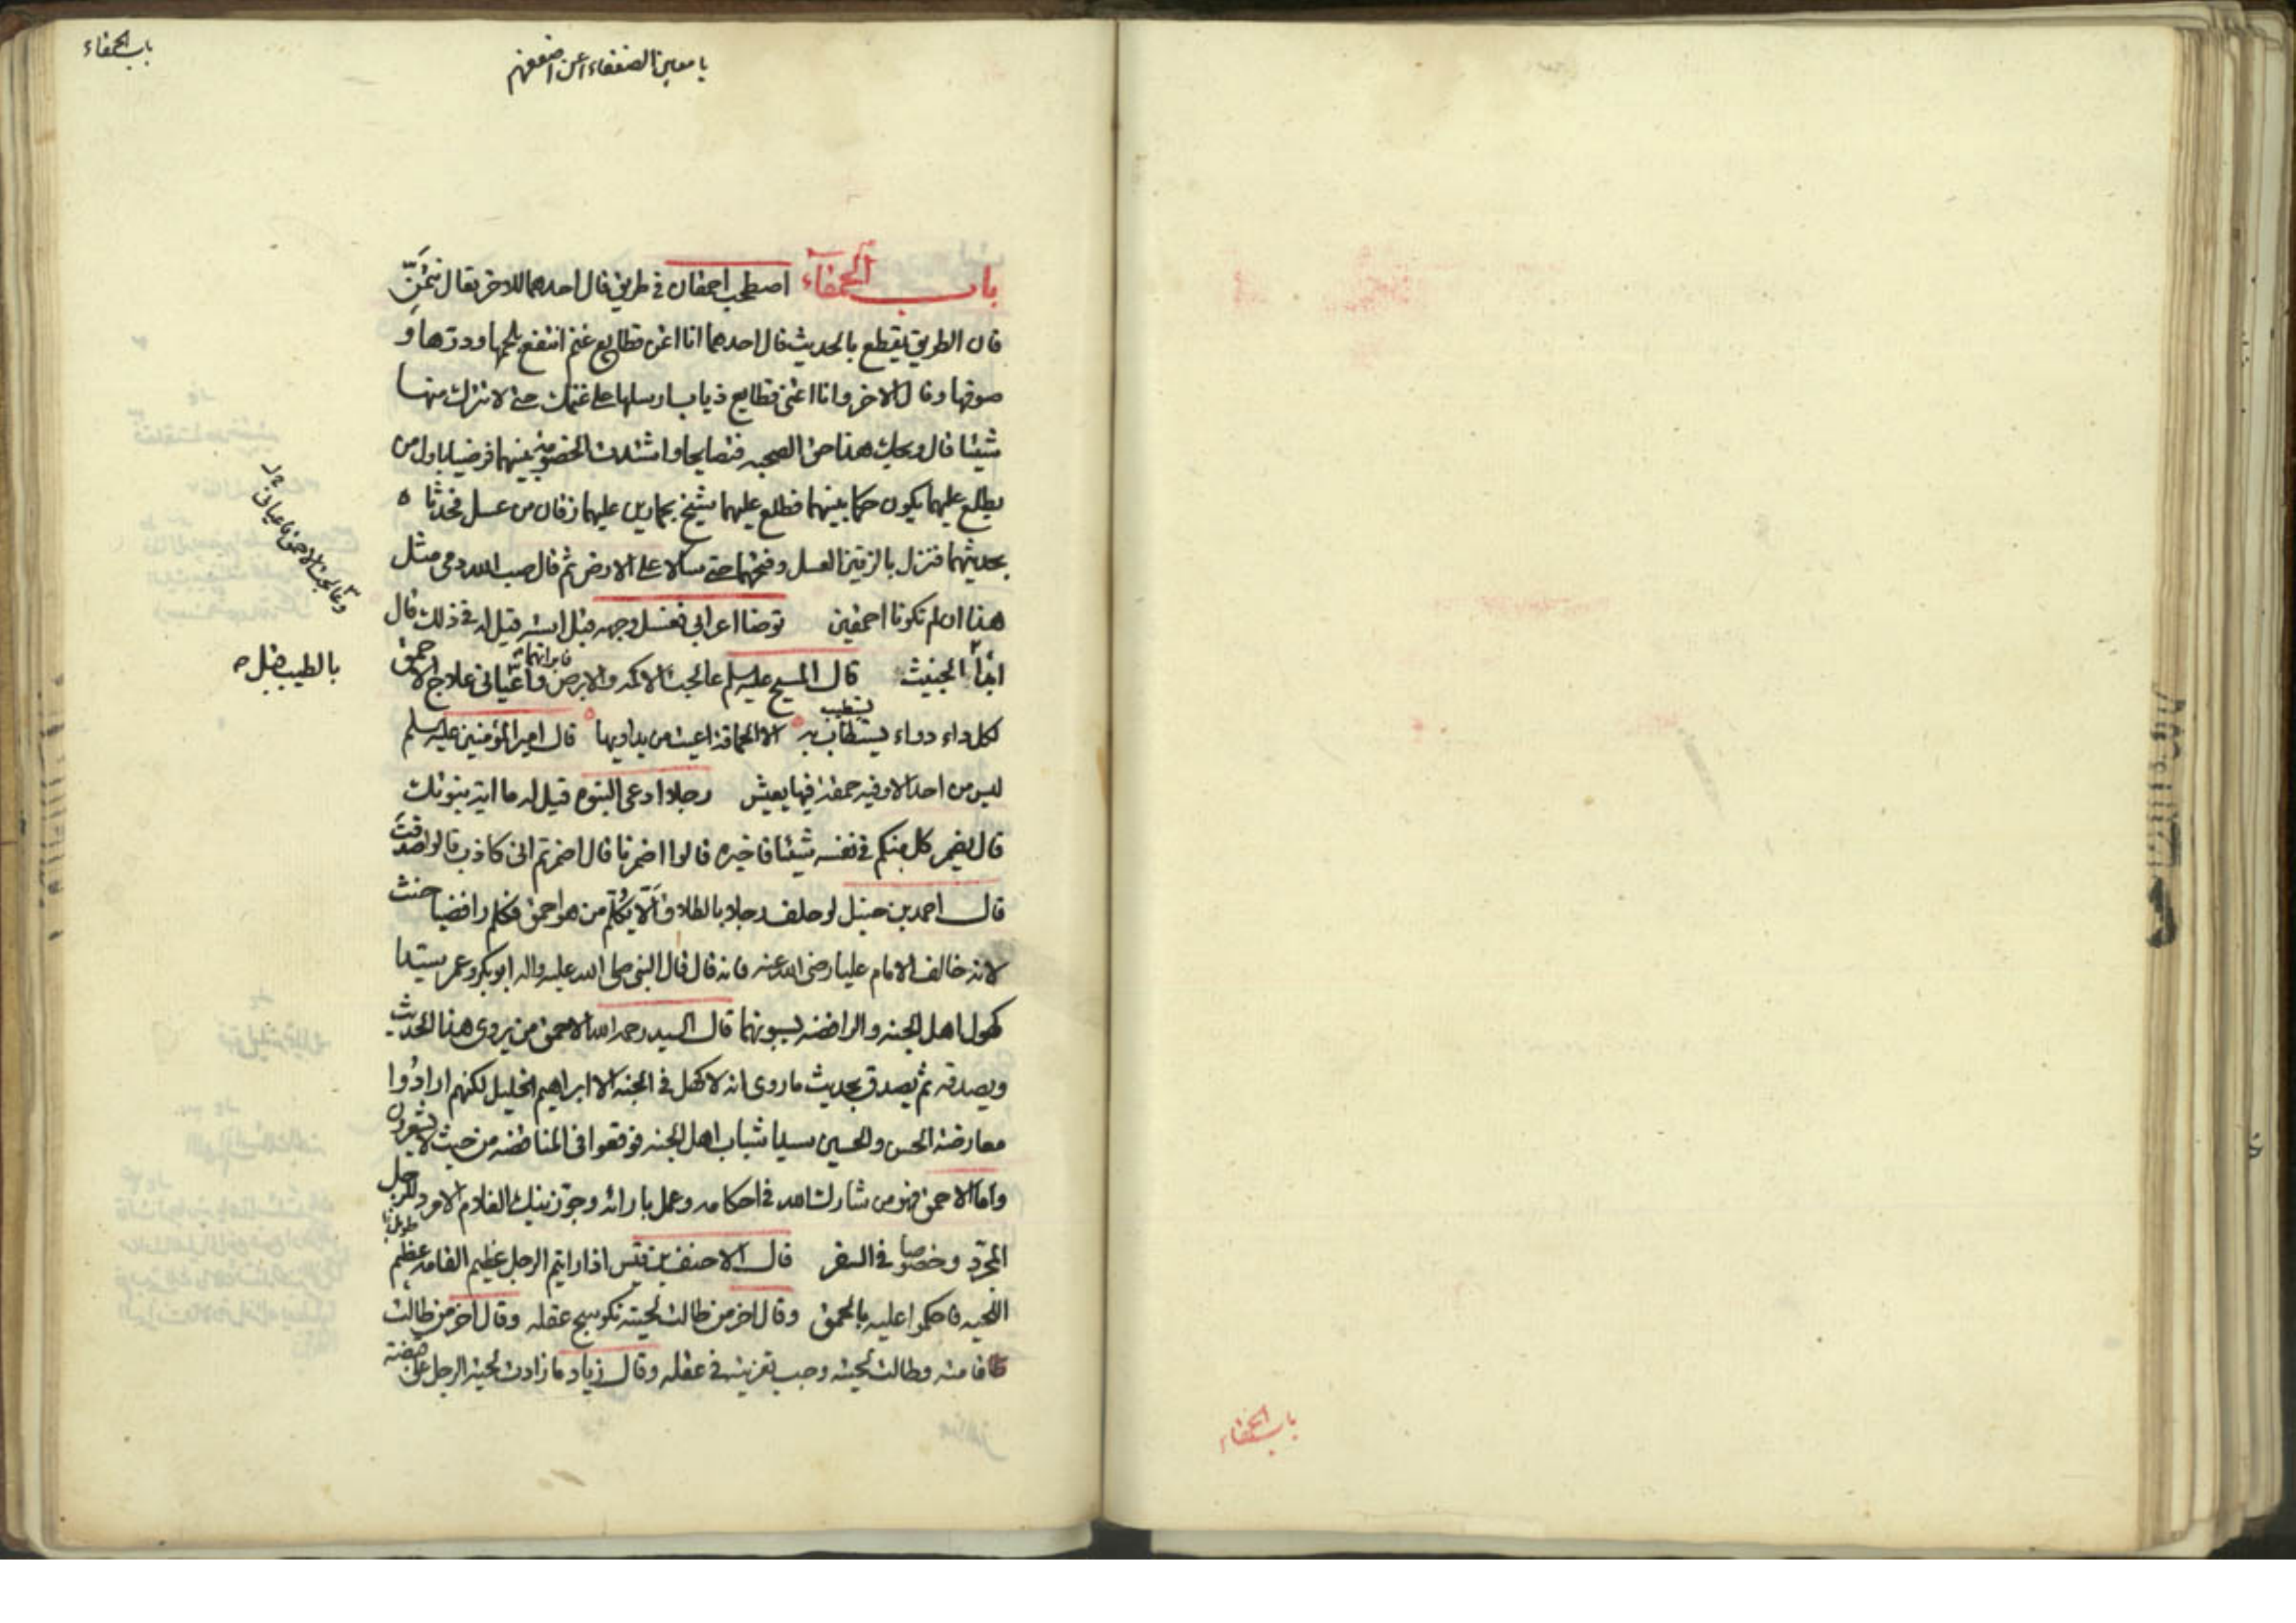 باب الحمقاء
يا معين الضعفاء اعن اضعفهم
باب الحمقاء اصطحب احمقان في طريق فقال احدهما للاخر تعال نتمنّ
فان الطريق يقطع بالحديث قال احدهما انا اتمنى قطايع غنم انتفع بلحمها ودرها و
صوفها وقال الاخر وانا اتمنى قطايع ذياب ارسلها على غنمك حتى لا تترك منها
شيئا قال ويحك هذا حق الصحبه فتصايحا واشتدت الخصومة بينهما فرضيا باول من
يطلع عليهما يكون حكما بينهما فطلع عليهما شيخ بحمارين عليهما زقان من عسل فحدثاه
بحديثهما فنزل بالزقين العسل وفتحهما حتى سالا على الارض ثم قال صب الله دمى مثل
هذا ان لم تكونا احمقين توضا اعرابي فغسل وجهه قبل استه قيل له في ذلك قال
ابدأ الخبيث قال المسيح عليه السلم عالجت الاكمه والابرص فابراتهما واعيانى علاج الاحمق
وعالجت الاحمق فاعيانى
بالطبيب
لكل داء دواء يستطاب به يستطب الا الحماقة اعيت من يداويها قال امير المؤمنين عليه السلم
ليس من احد الا وفيه حمقة فيها يعيش رجلا ادعى النبوه قيل له ما اية نبوتك
قال يضمر كل منكم في نفسه شيئا فاخبره قالوا اضمرنا قال اضمرتم انى كاذب قالوا صدقت
قال احمد بن حنبل لو حلف رجلا بالطلاق ألّا يكلم من هو احمق فكلم رافضيا حنث
لانه خالف الامام عليا رضى الله عنه فانه قال قال النبي صلى الله عليه واله ابو بكر وعمر سيدا
كهول اهل الجنه والرافضه يسبونهما قال السيد رحمه الله الاحمق من يروى هذا الحديث
ويصدقه ثم يصدق بحديث ما روى انه لا كهل في الجنه الا ابراهيم الخليل لكنهم ارادوا
معارضة الحسن والحسين سيدا شباب اهل الجنه فوقعوا في المناقضه من حيث لا يشعرون
واما الاحمق فهو من شارك الله في احكامه وعمل بارائه وجوّز نيك الغلام الامرد للرجل
المجرّد وخصوصا في السفر قال الاحنف بن قيس اذا رايتم الرجل عظيم القامه عظيم
طويل
اللحيه فاحكموا عليه بالحمق وقال اخر من طالت لحيته تكوسج عقله وقال اخر من طالت
قامته وطالت لحيته وجب تعزيته في عقله وقال زياد ما زادت لحية الرجل على قبضته
باب الحمقاء